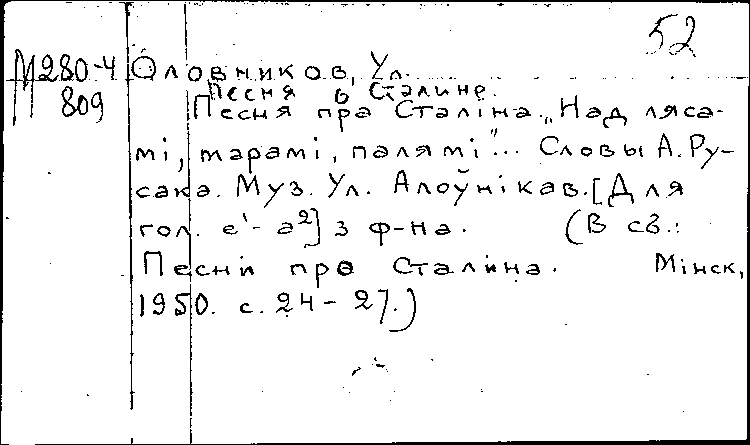 52
М280-4 Оловников, Ул.
Песня о Сталине.
809 Песня пра Сталіна. „Над ляса-
мі, тарамі, палямі"... Словы А. Ру-
сака. Муз. Ул. Алоўнікав. [Для
гол. е¹- а²] з ф-на. (В сб.:
Песні пра Сталина. Мінск,
1950. с. 24-27.)